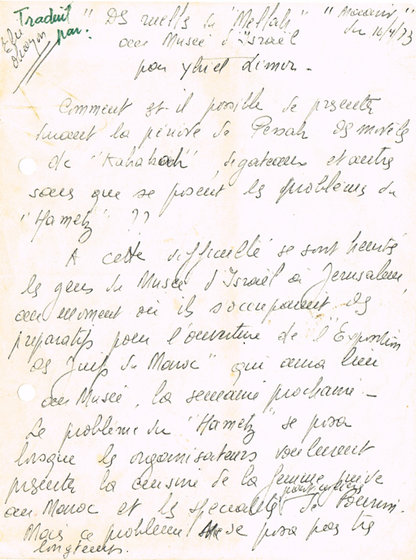 Traduit par:
" Des ruelles du "Mellah" " "Maariv"
au Musée d'Israël du 16/4/73
par Yhiel Limor.
Comment est-il possible de présenter
durant la période de Pessah des
de " , de gateaux et autre
sans que se posent les problèmes du
"Hametz" ??
A cette difficulté se sont heurtés
les gens du Musée d'Israël à Jerusalem
au moment où ils s'occupaient des
préparatifs pour l'ouverture de l'Exposition
des "Juifs du Maroc" qui aura lieu
au Musée, la semaine prochaine -
Le problème du "Hametz" se posa
lorsque les organisateurs voulurent
présenter la cuisine de la femme juive
au Maroc et les specialités de Pourim.
Mais ce problème ne se posa pas
longtemps.